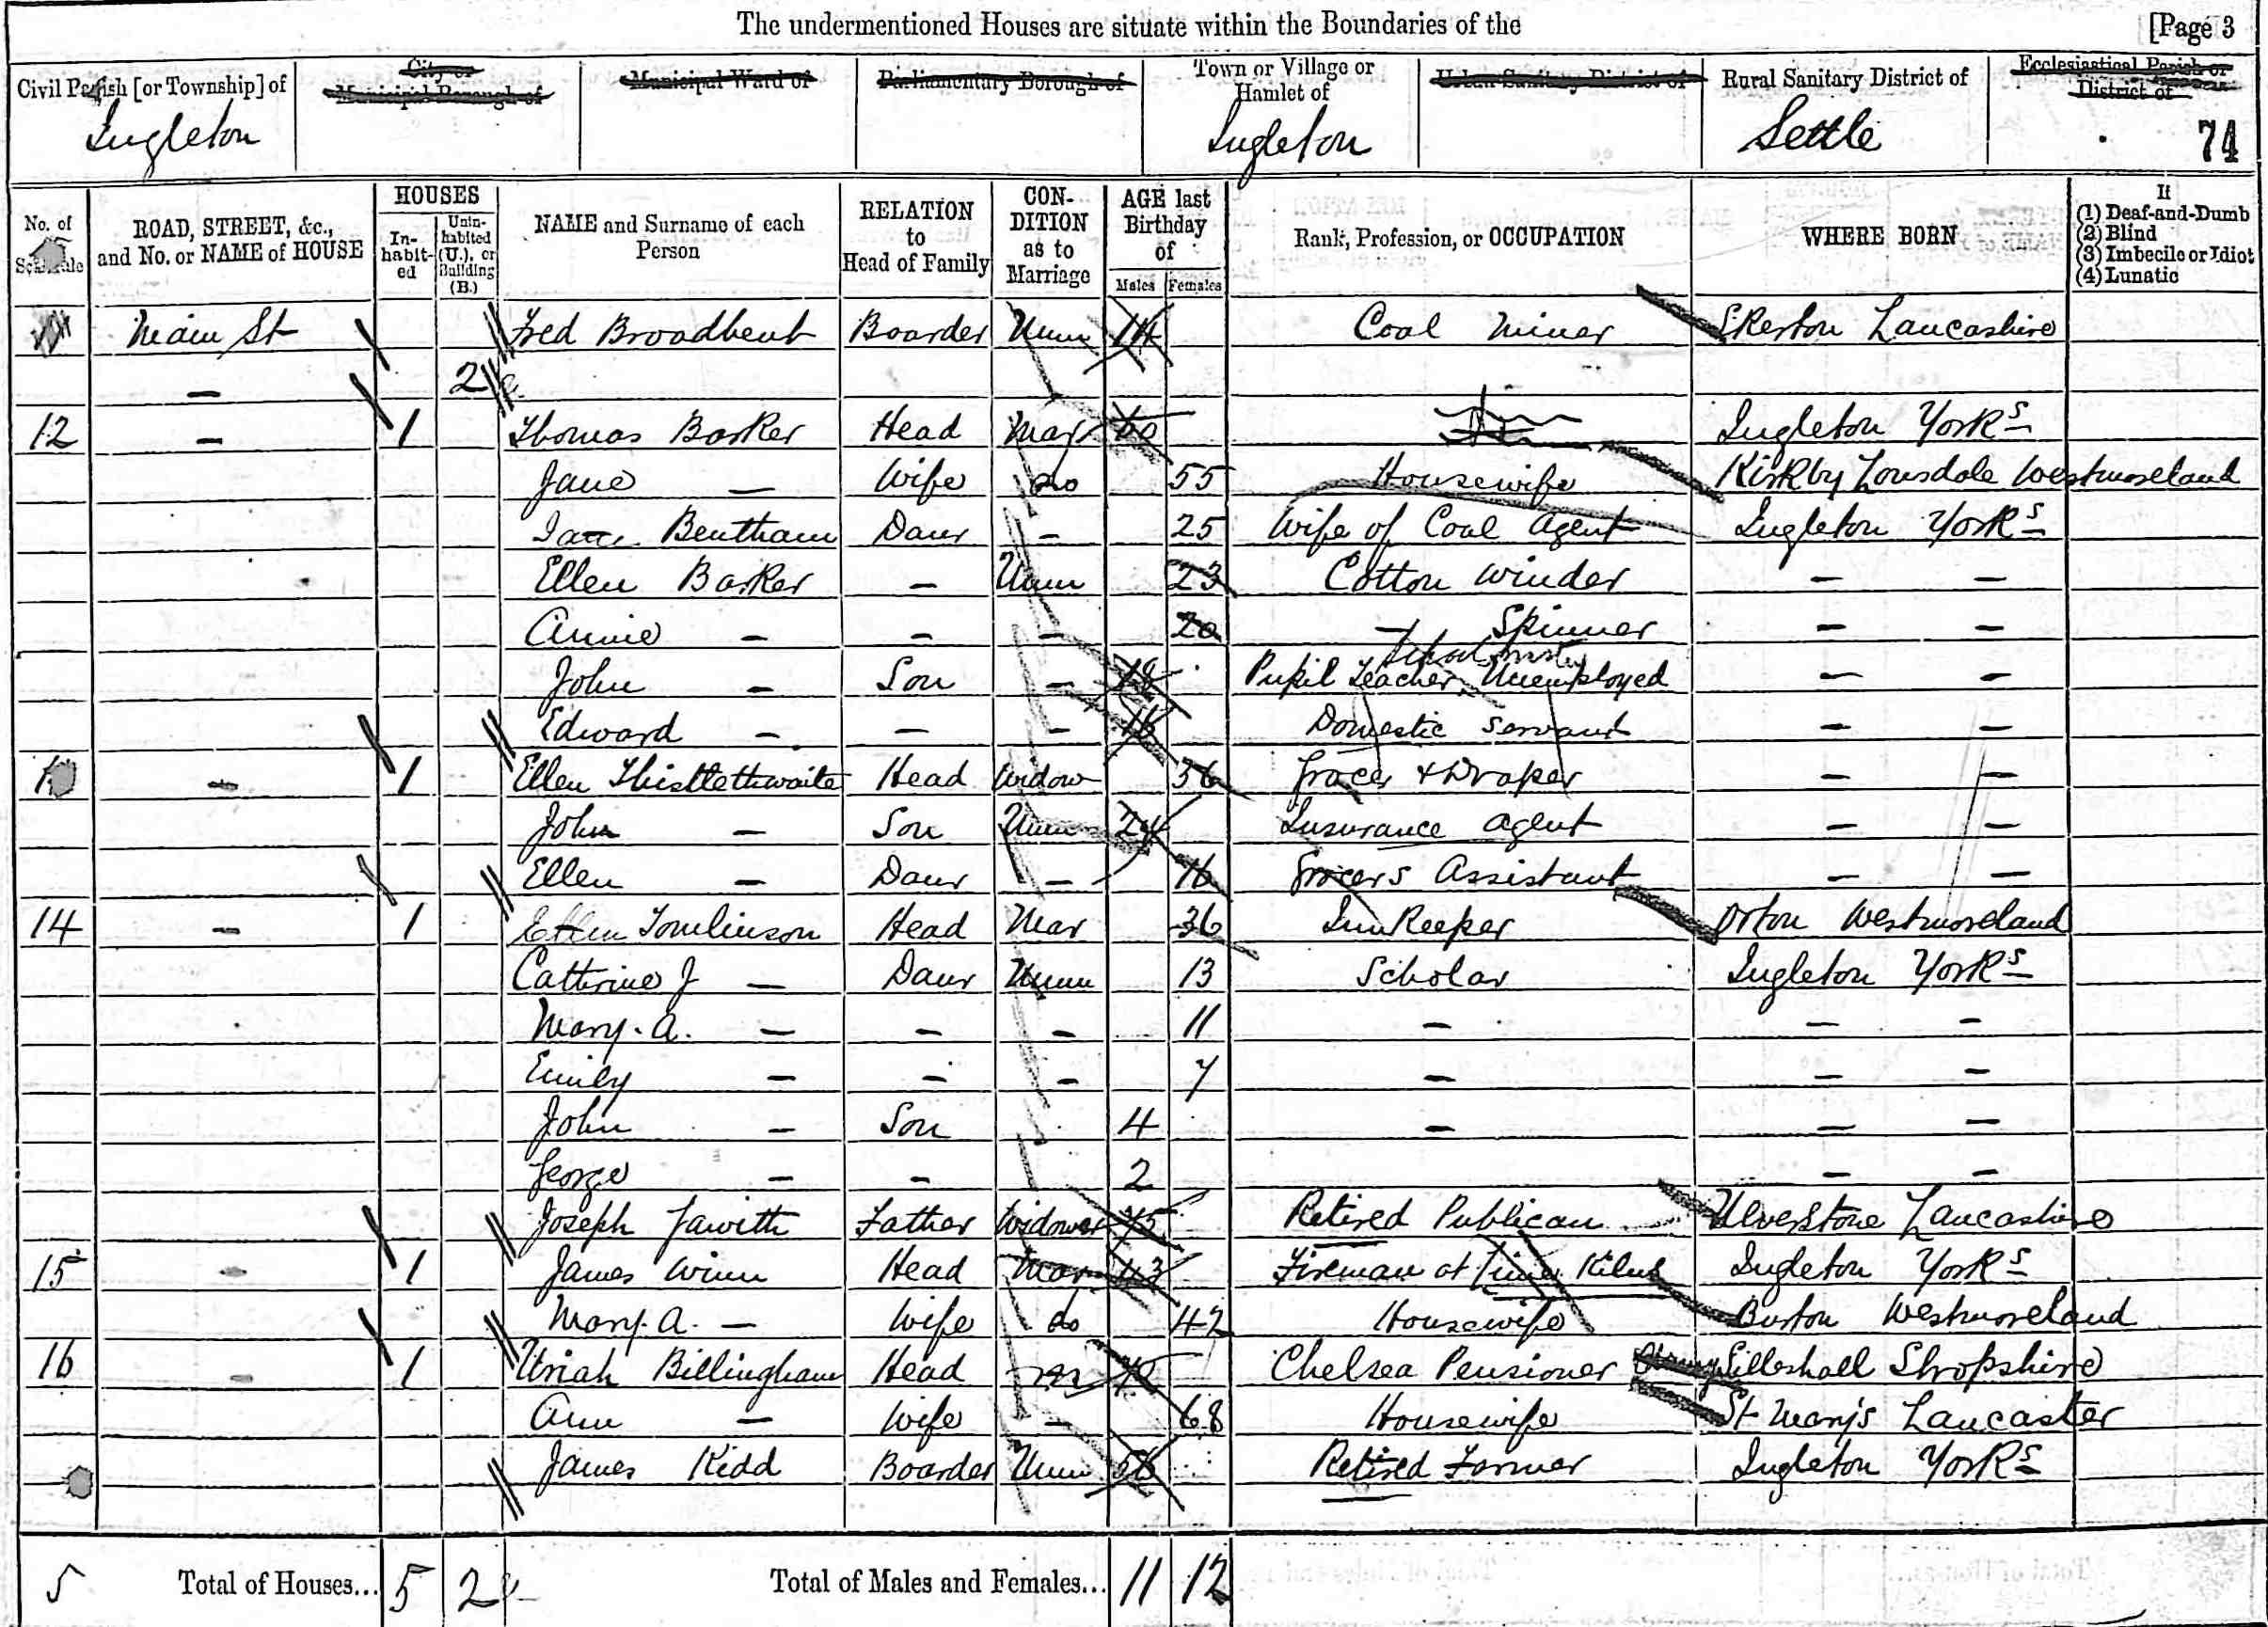 The undermentioned Houses are situate within the Boundaries of the [Page 3
Civil Parish [or Township] of City or Municipal Borough of Municipal Ward of Parliamentary Borough of Town or Village or Hamlet of Urban Sanitary District of Rural Sanitary District of Ecclesiastical Parish or District of
Ingleton Ingleton Settle 74
No. of Schedule ROAD, STREET, &c., and No. or NAME of HOUSE HOUSES In-habit-ed Unin-habited (U.), or Building (B.) NAME and Surname of each Person RELATION to Head of Family CON-DITION as to Marriage AGE last Birthday of Males Females Rank, Profession, or OCCUPATION WHERE BORN If (1) Deaf-and-Dumb (2) Blind (3) Imbecile or Idiot (4) Lunatic
Main St Fred Broadbent Boarder Unm 14 Coal Miner Skerton Lancashire
— 2
12 — 1 Thomas Barker Head Mar 60 Ingleton Yorks
Jane — Wife do 55 Housewife Kirkby Lonsdale Westmoreland
Bentham Daur — 25 Wife of Coal Agent Ingleton Yorks
Ellen Barker — Unm 23 Cotton Winder — —
Annie — — — 20 — Spinner — —
John — Son — 18 Pupil Teacher Unemployed — —
Edward — — — 16 Domestic Servant — —
— 1 Ellen Thistlethwaite Head Widow 36 Grocer & Draper — —
John — Son Unm 24 Insurance Agent — —
Ellen — Daur — 16 Grocers Assistant — —
14 — 1 Tomlinson Head Mar 36 InnKeeper Orton Westmoreland
Cathrine J — Daur Unm 13 Scholar Ingleton Yorks
Mary. A. — — — 11 — — —
Emily — — — 7 — — —
John — Son 4 — — —
George — — 2 — —
Joseph Jawith Father Widower 75 Retired Publican Ulverstone Lancashire
15 — 1 James Winn Head Mar 43 Fireman at Lime Kilns Ingleton Yorks
Mary. A. — Wife do 42 Housewife Burton Westmoreland
16 — 1 Uriah Billingham Head m Chelsea Pensioner Lilleshall Shropshire
Ann — Wife — 68 Housewife St Mary's Lancaster
James Kidd Boarder Unm Retired Farmer Ingleton Yorks
5 Total of Houses... 5 2 Total of Males and Females... 11 12